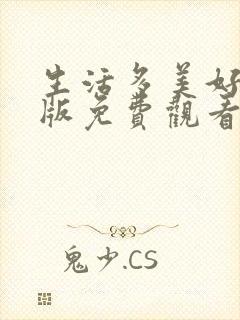 生活多美好
版免費觀看
鬼少.CS